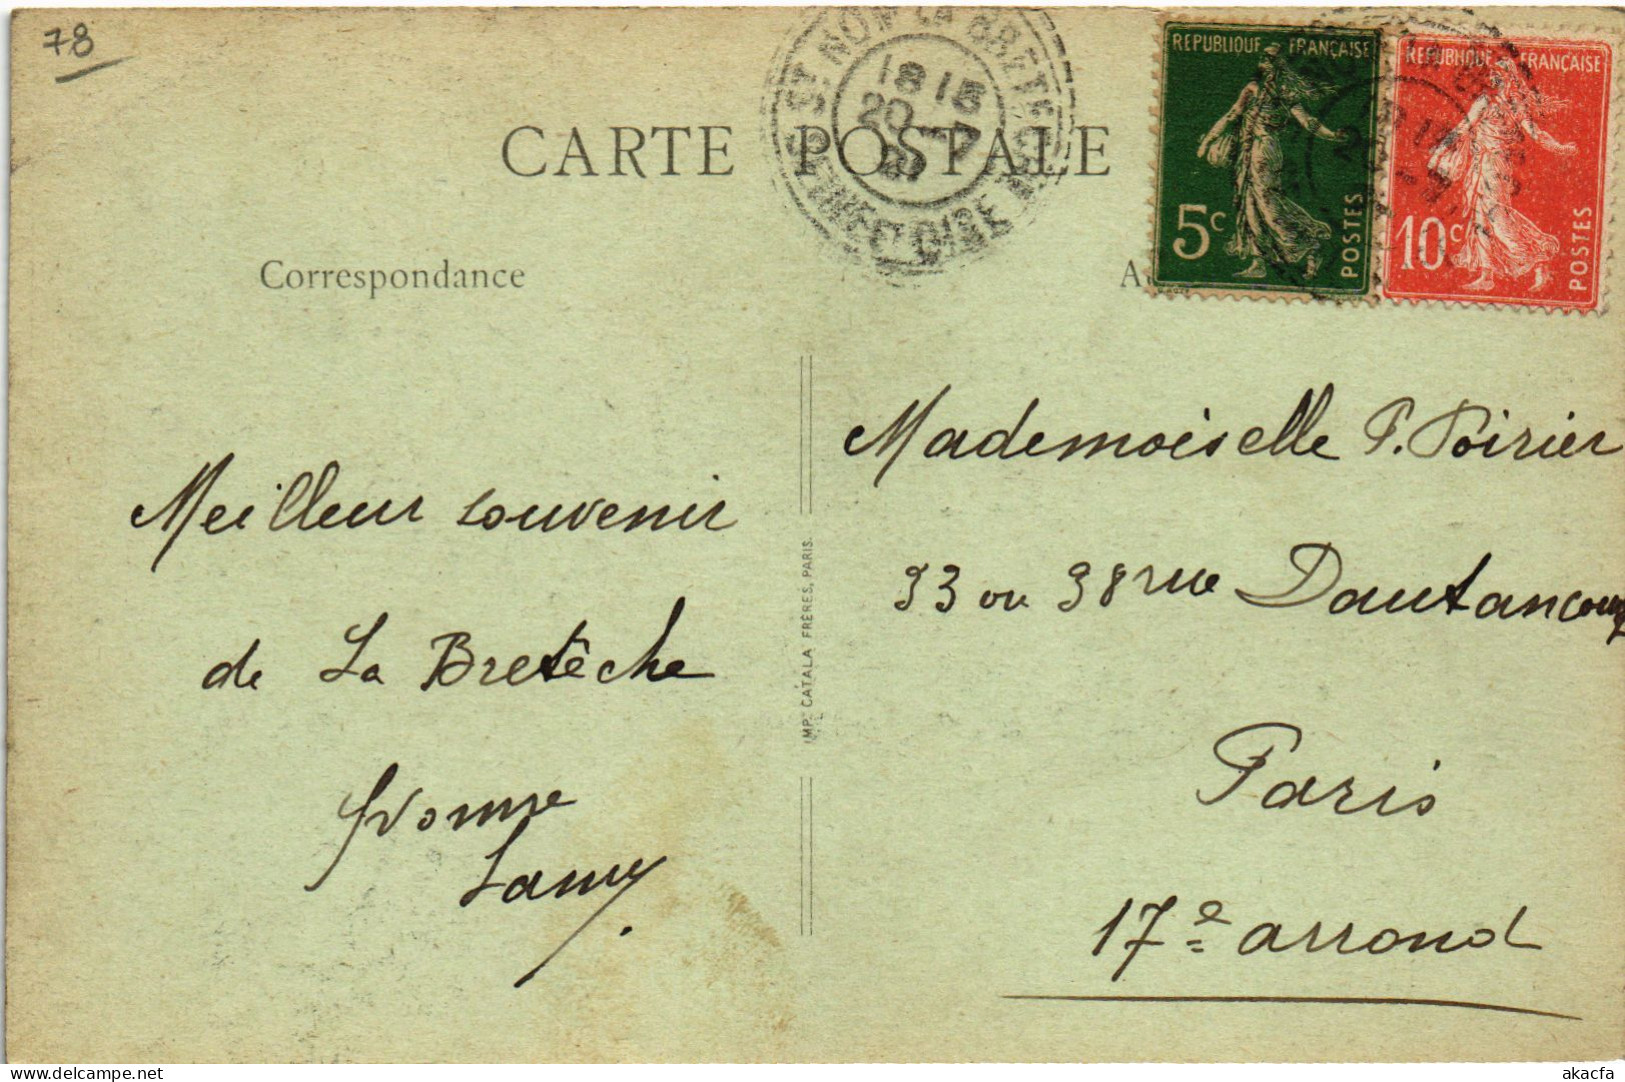 78
CARTE POSTALE
ST NOM LA BRETECHE
18 15
20 -7
SEINE-ET-OISE
REPUBLIQUE FRANÇAISE
5c
POSTES
REPUBLIQUE FRANÇAISE
10c
POSTES
Correspondance
Meilleur souvenir
de La Bretêche
Yvonne
Lamy.
IMP. CATALA FRÈRES, PARIS.
Mademoiselle P. Poirier
33 ou 38 rue Dautancourt
Paris
17e arrond
akacfa